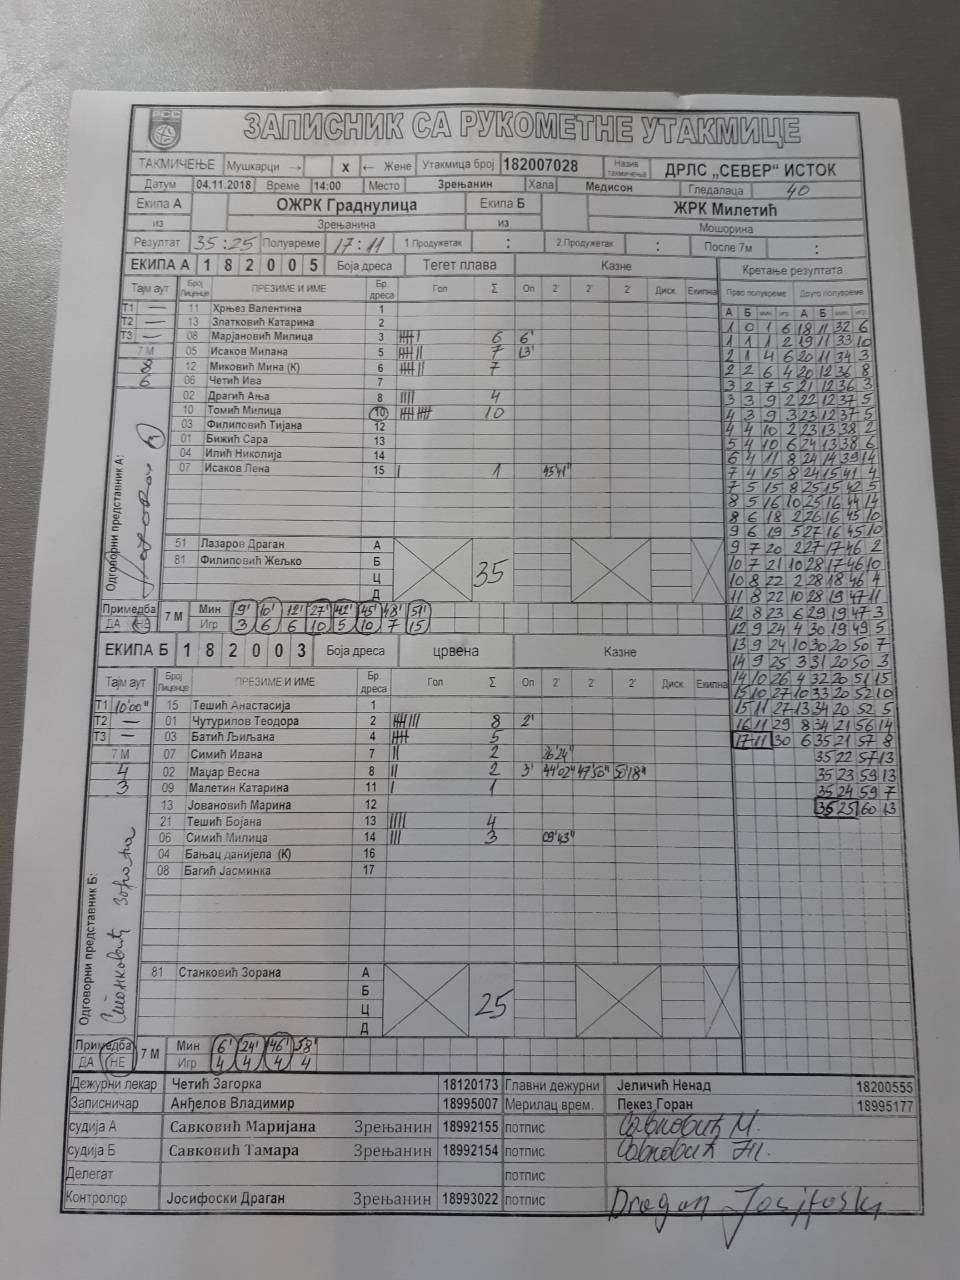 РСС
ЗАПИСНИК СА РУКОМЕТНЕ УТАКМИЦЕ
ТАКМИЧЕЊЕ Мушкарци → X ← Жене Утакмица број 182007028 Назив такмичења ДРЛС „СЕВЕР“ ИСТОК
Датум 04.11.2018 Време 14:00 Место Зрењанин Хала Медисон Гледалаца 40
Екипа А ОЖРК Граднулица Екипа Б ЖРК Милетић
из Зрењанина из Мошорина
Резултат 35:25 Полувреме 17:11 1.Продужетак : 2.Продужетак : После 7м :
ЕКИПА А 1 8 2 0 0 5 Боја дреса Тегет плава Казне Кретање резултата
Тајм аут Број Лиценце ПРЕЗИМЕ И ИМЕ Бр. дреса Гол Σ Оп 2' 2' 2' Диск. Екипна Прво полувреме Друго полувреме
Т1 — 11 Хрњез Валентина 1
Т2 — 13 Златковић Катарина 2
Т3 — 08 Марјановић Милица 3 6 6'
7 М 05 Исаков Милана 5 7 13'
8 12 Миковић Мина (К) 6 7
6 06 Четић Ива 7
02 Драгић Ања 8 4
10 Томић Милица 10 10
03 Филиповић Тијана 12
01 Бижић Сара 13
04 Илић Николија 14
07 Исаков Лена 15 1 43'41"
Одговорни представник А:
51 Лазаров Драган А
81 Филиповић Жељко Б
Ц
Д
35
Примедба ДА НЕ 7 М
Мин 9' 10' 12' 27' 42' 45' 48' 51'
Игр 3 6 6 10 5 10 7 15
ЕКИПА Б 1 8 2 0 0 3 Боја дреса црвена Казне
Тајм аут Број Лиценце ПРЕЗИМЕ И ИМЕ Бр. дреса Гол Σ Оп 2' 2' 2' Диск. Екипна
Т1 10'00" 15 Тешић Анастасија 1
Т2 — 01 Чутурилов Теодора 2 8 2'
Т3 — 03 Батић Љиљана 4 5
7 М 07 Симић Ивана 7 2 26'24"
4 02 Маџар Весна 8 2 3' 44'02" 47'50"
3 09 Малетин Катарина 11 1
13 Јовановић Марина 12
21 Тешић Бојана 13 4
06 Симић Милица 14 3 09'43"
04 Бањац данијела (К) 16
08 Багић Јасминка 17
Одговорни представник Б: Станковић Зорана
81 Станковић Зорана А
Б
Ц
Д
25
Примедба ДА НЕ 7 М
Мин 6' 24' 46' 58'
Игр 4 4 4 4
А Б мин. игр. А Б мин. игр.
1 0 1 6 18 11 32 6
1 1 1 2 19 11 33 10
2 1 4 6 20 11 34 3
2 2 6 4 20 12 36 8
3 2 7 5 21 12 36 3
3 3 9 2 22 12 37 5
4 3 9 3 23 12 37 5
4 4 10 2 23 13 38 2
5 4 10 6 24 13 38 6
6 4 11 8 24 14 39 14
7 4 15 8 24 15 41 4
7 5 15 8 25 15 42 5
8 5 16 10 25 16 44 14
8 6 18 2 26 16 45 10
9 6 19 5 27 16 45 10
9 7 20 2 27 17 46 2
10 7 21 10 28 17 46 10
10 8 22 2 28 18 46 4
11 8 22 10 28 19 47 11
12 8 23 6 29 19 47 3
12 9 24 4 30 19 49 5
13 9 24 10 30 20 50 7
14 9 25 3 31 20 50 3
14 10 26 4 32 20 51 15
15 10 27 10 33 20 52 10
15 11 27 13 34 20 52 5
16 11 29 8 34 21 56 14
17 11 30 6 35 21 57 8
35 22 57 13
35 23 59 13
35 24 59 7
35 25 60 13
Дежурни лекар Четић Загорка 18120173 Главни дежурни Јеличић Ненад 18200555
Записничар Анђелов Владимир 18995007 Мерилац врем. Пекез Горан 18995177
судија А Савковић Маријана Зрењанин 18992155 потпис Савковић М.
судија Б Савковић Тамара Зрењанин 18992154 потпис Савковић
Делегат потпис
Контролор Јосифоски Драган Зрењанин 18993022 потпис Dragan Josifoski